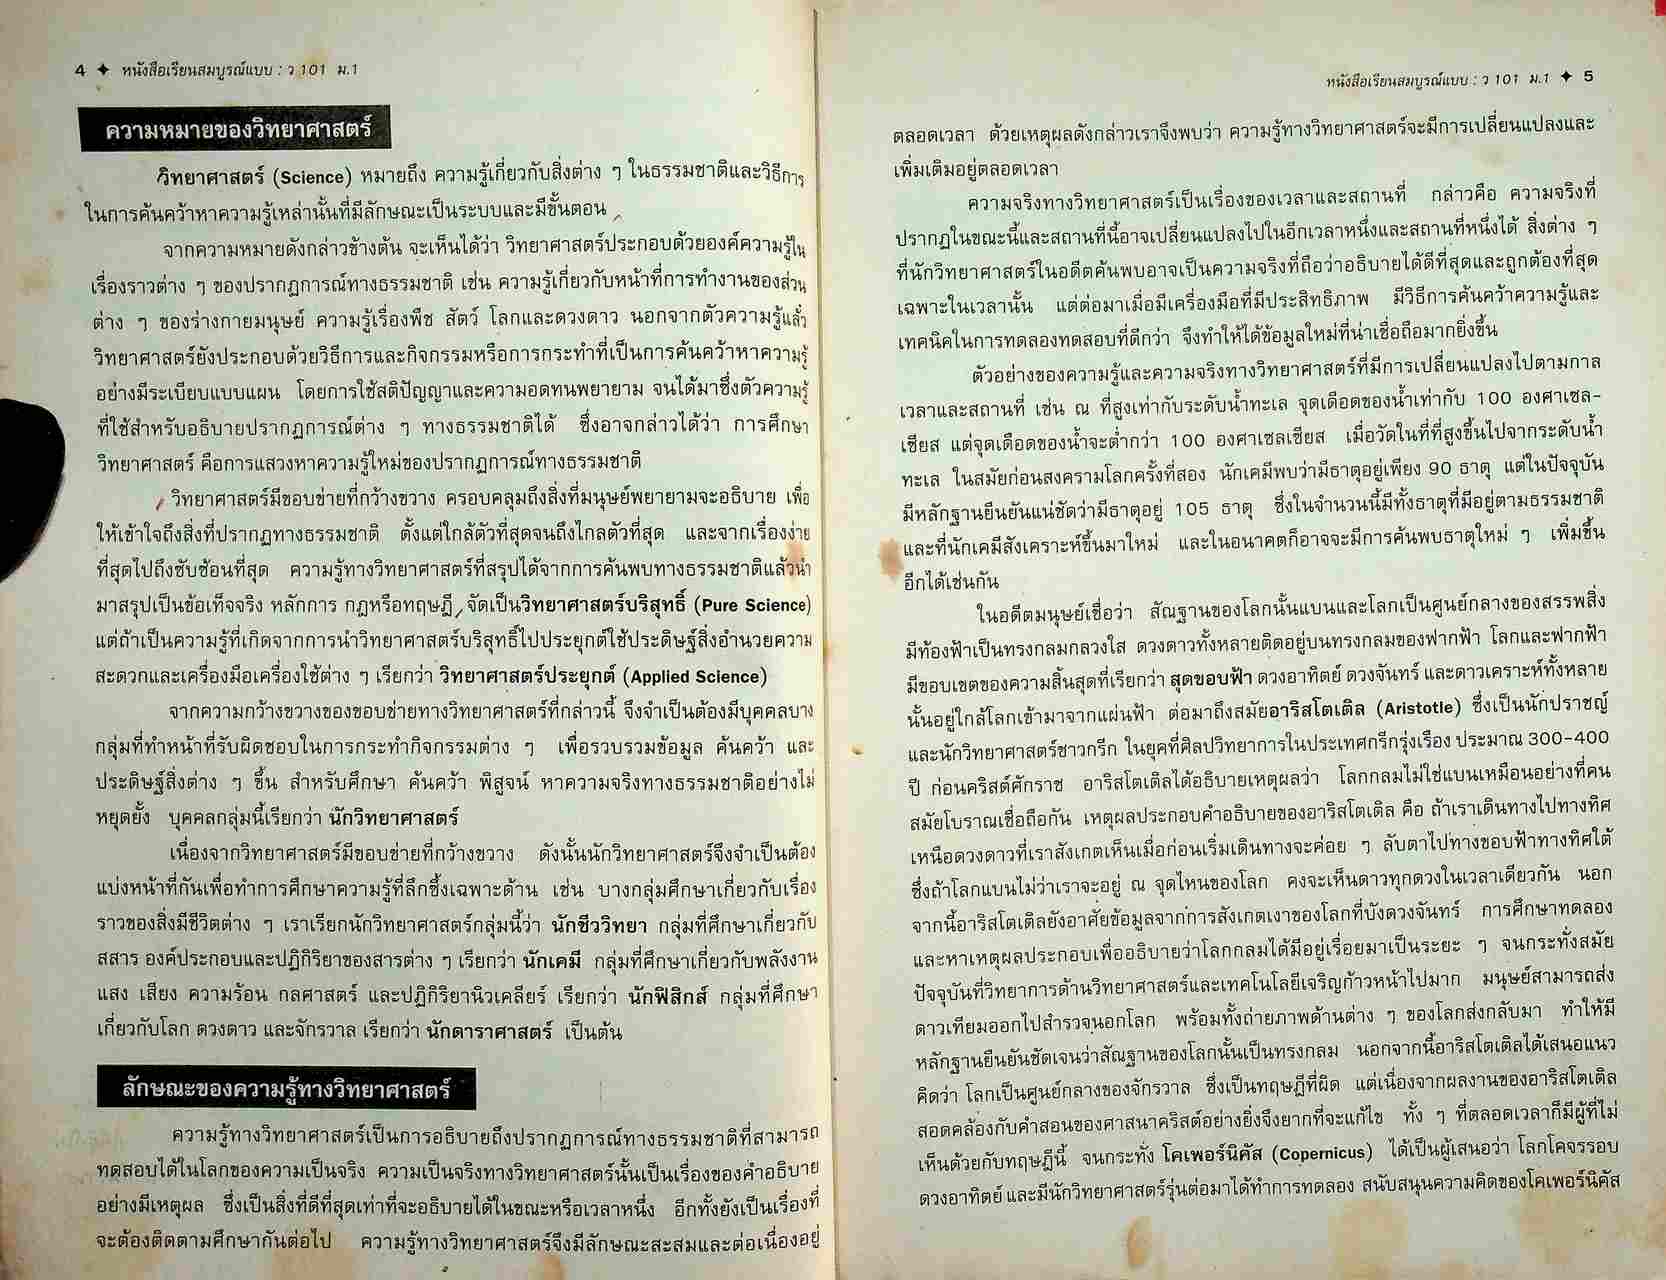 4 ✦ หนังสือเรียนสมบูรณ์แบบ : ว 101 ม.1
ความหมายของวิทยาศาสตร์
วิทยาศาสตร์ (Science) หมายถึง ความรู้เกี่ยวกับสิ่งต่าง ๆ ในธรรมชาติและวิธีการ
ในการค้นคว้าหาความรู้เหล่านั้นที่มีลักษณะเป็นระบบและมีขั้นตอน
จากความหมายดังกล่าวข้างต้น จะเห็นได้ว่า วิทยาศาสตร์ประกอบด้วยองค์ความรู้ใน
เรื่องราวต่าง ๆ ของปรากฏการณ์ทางธรรมชาติ เช่น ความรู้เกี่ยวกับหน้าที่การทำงานของส่วน
ต่าง ๆ ของร่างกายมนุษย์ ความรู้เรื่องพืช สัตว์ โลกและดวงดาว นอกจากตัวความรู้แล้ว
วิทยาศาสตร์ยังประกอบด้วยวิธีการและกิจกรรมหรือการกระทำที่เป็นการค้นคว้าหาความรู้
อย่างมีระเบียบแบบแผน โดยการใช้สติปัญญาและความอดทนพยายาม จนได้มาซึ่งตัวความรู้
ที่ใช้สำหรับอธิบายปรากฏการณ์ต่าง ๆ ทางธรรมชาติได้ ซึ่งอาจกล่าวได้ว่า การศึกษา
วิทยาศาสตร์ คือการแสวงหาความรู้ใหม่ของปรากฏการณ์ทางธรรมชาติ
วิทยาศาสตร์มีขอบข่ายที่กว้างขวาง ครอบคลุมถึงสิ่งที่มนุษย์พยายามจะอธิบาย เพื่อ
ให้เข้าใจถึงสิ่งที่ปรากฏทางธรรมชาติ ตั้งแต่ใกล้ตัวที่สุดจนถึงไกลตัวที่สุด และจากเรื่องง่าย
ที่สุดไปถึงซับซ้อนที่สุด ความรู้ทางวิทยาศาสตร์ที่สรุปได้จากการค้นพบทางธรรมชาติแล้วนำ
มาสรุปเป็นข้อเท็จจริง หลักการ กฎหรือทฤษฎี จัดเป็นวิทยาศาสตร์บริสุทธิ์ (Pure Science)
แต่ถ้าเป็นความรู้ที่เกิดจากการนำวิทยาศาสตร์บริสุทธิ์ไปประยุกต์ใช้ประดิษฐ์สิ่งอำนวยความ
สะดวกและเครื่องมือเครื่องใช้ต่าง ๆ เรียกว่า วิทยาศาสตร์ประยุกต์ (Applied Science)
จากความกว้างขวางของขอบข่ายทางวิทยาศาสตร์ที่กล่าวนี้ จึงจำเป็นต้องมีบุคคลบาง
กลุ่มที่ทำหน้าที่รับผิดชอบในการกระทำกิจกรรมต่าง ๆ เพื่อรวบรวมข้อมูล ค้นคว้า และ
ประดิษฐ์สิ่งต่าง ๆ ขึ้น สำหรับศึกษา ค้นคว้า พิสูจน์ หาความจริงทางธรรมชาติอย่างไม่
หยุดยั้ง บุคคลกลุ่มนี้เรียกว่า นักวิทยาศาสตร์
เนื่องจากวิทยาศาสตร์มีขอบข่ายที่กว้างขวาง ดังนั้นนักวิทยาศาสตร์จึงจำเป็นต้อง
แบ่งหน้าที่กันเพื่อทำการศึกษาความรู้ที่ลึกซึ้งเฉพาะด้าน เช่น บางกลุ่มศึกษาเกี่ยวกับเรื่อง
ราวของสิ่งมีชีวิตต่าง ๆ เราเรียกนักวิทยาศาสตร์กลุ่มนี้ว่า นักชีววิทยา กลุ่มที่ศึกษาเกี่ยวกับ
สสาร องค์ประกอบและปฏิกิริยาของสารต่าง ๆ เรียกว่า นักเคมี กลุ่มที่ศึกษาเกี่ยวกับพลังงาน
แสง เสียง ความร้อน กลศาสตร์ และปฏิกิริยานิวเคลียร์ เรียกว่า นักฟิสิกส์ กลุ่มที่ศึกษา
เกี่ยวกับโลก ดวงดาว และจักรวาล เรียกว่า นักดาราศาสตร์ เป็นต้น
ลักษณะของความรู้ทางวิทยาศาสตร์
ความรู้ทางวิทยาศาสตร์เป็นการอธิบายถึงปรากฏการณ์ทางธรรมชาติที่สามารถ
ทดสอบได้ในโลกของความเป็นจริง ความเป็นจริงทางวิทยาศาสตร์นั้นเป็นเรื่องของคำอธิบาย
อย่างมีเหตุผล ซึ่งเป็นสิ่งที่ดีที่สุดเท่าที่จะอธิบายได้ในขณะหรือเวลาหนึ่ง อีกทั้งยังเป็นเรื่องที่
จะต้องติดตามศึกษากันต่อไป ความรู้ทางวิทยาศาสตร์จึงมีลักษณะสะสมและต่อเนื่องอยู่
หนังสือเรียนสมบูรณ์แบบ : ว 101 ม.1 ✦ 5
ตลอดเวลา ด้วยเหตุผลดังกล่าวเราจึงพบว่า ความรู้ทางวิทยาศาสตร์จะมีการเปลี่ยนแปลงและ
เพิ่มเติมอยู่ตลอดเวลา
ความจริงทางวิทยาศาสตร์เป็นเรื่องของเวลาและสถานที่ กล่าวคือ ความจริงที่
ปรากฏในขณะนี้และสถานที่นี้อาจเปลี่ยนแปลงไปในอีกเวลาหนึ่งและสถานที่หนึ่งได้ สิ่งต่าง ๆ
ที่นักวิทยาศาสตร์ในอดีตค้นพบอาจเป็นความจริงที่ถือว่าอธิบายได้ดีที่สุดและถูกต้องที่สุด
เฉพาะในเวลานั้น แต่ต่อมาเมื่อมีเครื่องมือที่มีประสิทธิภาพ มีวิธีการค้นคว้าความรู้และ
เทคนิคในการทดลองทดสอบที่ดีกว่า จึงทำให้ได้ข้อมูลใหม่ที่น่าเชื่อถือมากยิ่งขึ้น
ตัวอย่างของความรู้และความจริงทางวิทยาศาสตร์ที่มีการเปลี่ยนแปลงไปตามกาล
เวลาและสถานที่ เช่น ณ ที่สูงเท่ากับระดับน้ำทะเล จุดเดือดของน้ำเท่ากับ 100 องศาเซล-
เซียส แต่จุดเดือดของน้ำจะต่ำกว่า 100 องศาเซลเซียส เมื่อวัดในที่ที่สูงขึ้นไปจากระดับน้ำ
ทะเล ในสมัยก่อนสงครามโลกครั้งที่สอง นักเคมีพบว่ามีธาตุอยู่เพียง 90 ธาตุ แต่ในปัจจุบัน
มีหลักฐานยืนยันแน่ชัดว่ามีธาตุอยู่ 105 ธาตุ ซึ่งในจำนวนนี้มีทั้งธาตุที่มีอยู่ตามธรรมชาติ
และที่นักเคมีสังเคราะห์ขึ้นมาใหม่ และในอนาคตก็อาจจะมีการค้นพบธาตุใหม่ ๆ เพิ่มขึ้น
อีกได้เช่นกัน
ในอดีตมนุษย์เชื่อว่า สัณฐานของโลกนั้นแบนและโลกเป็นศูนย์กลางของสรรพสิ่ง
มีท้องฟ้าเป็นทรงกลมกลวงใส ดวงดาวทั้งหลายติดอยู่บนทรงกลมของฟากฟ้า โลกและฟากฟ้า
มีขอบเขตของความสิ้นสุดที่เรียกว่า สุดขอบฟ้า ดวงอาทิตย์ ดวงจันทร์ และดาวเคราะห์ทั้งหลาย
นั้นอยู่ใกล้โลกเข้ามาจากแผ่นฟ้า ต่อมาถึงสมัยอาริสโตเติล (Aristotle) ซึ่งเป็นนักปราชญ์
และนักวิทยาศาสตร์ชาวกรีก ในยุคที่ศิลปวิทยาการในประเทศกรีกรุ่งเรือง ประมาณ 300-400
ปี ก่อนคริสต์ศักราช อาริสโตเติลได้อธิบายเหตุผลว่า โลกกลมไม่ใช่แบนเหมือนอย่างที่คน
สมัยโบราณเชื่อถือกัน เหตุผลประกอบคำอธิบายของอาริสโตเติล คือ ถ้าเราเดินทางไปทางทิศ
เหนือดวงดาวที่เราสังเกตเห็นเมื่อก่อนเริ่มเดินทางจะค่อย ๆ ลับตาไปทางขอบฟ้าทางทิศใต้
ซึ่งถ้าโลกแบนไม่ว่าเราจะอยู่ ณ จุดไหนของโลก คงจะเห็นดาวทุกดวงในเวลาเดียวกัน นอก
จากนี้อาริสโตเติลยังอาศัยข้อมูลจากการสังเกตเงาของโลกที่บังดวงจันทร์ การศึกษาทดลอง
และหาเหตุผลประกอบเพื่ออธิบายว่าโลกกลมได้มีอยู่เรื่อยมาเป็นระยะ ๆ จนกระทั่งสมัย
ปัจจุบันที่วิทยาการด้านวิทยาศาสตร์และเทคโนโลยีเจริญก้าวหน้าไปมาก มนุษย์สามารถส่ง
ดาวเทียมออกไปสำรวจนอกโลก พร้อมทั้งถ่ายภาพด้านต่าง ๆ ของโลกส่งกลับมา ทำให้มี
หลักฐานยืนยันชัดเจนว่าสัณฐานของโลกนั้นเป็นทรงกลม นอกจากนี้อาริสโตเติลได้เสนอแนว
คิดว่า โลกเป็นศูนย์กลางของจักรวาล ซึ่งเป็นทฤษฎีที่ผิด แต่เนื่องจากผลงานของอาริสโตเติล
สอดคล้องกับคำสอนของศาสนาคริสต์อย่างยิ่งจึงยากที่จะแก้ไข ทั้ง ๆ ที่ตลอดเวลาก็มีผู้ที่ไม่
เห็นด้วยกับทฤษฎีนี้ จนกระทั่ง โคเพอร์นิคัส (Copernicus) ได้เป็นผู้เสนอว่า โลกโคจรรอบ
ดวงอาทิตย์ และมีนักวิทยาศาสตร์รุ่นต่อมาได้ทำการทดลอง สนับสนุนความคิดของโคเพอร์นิคัส